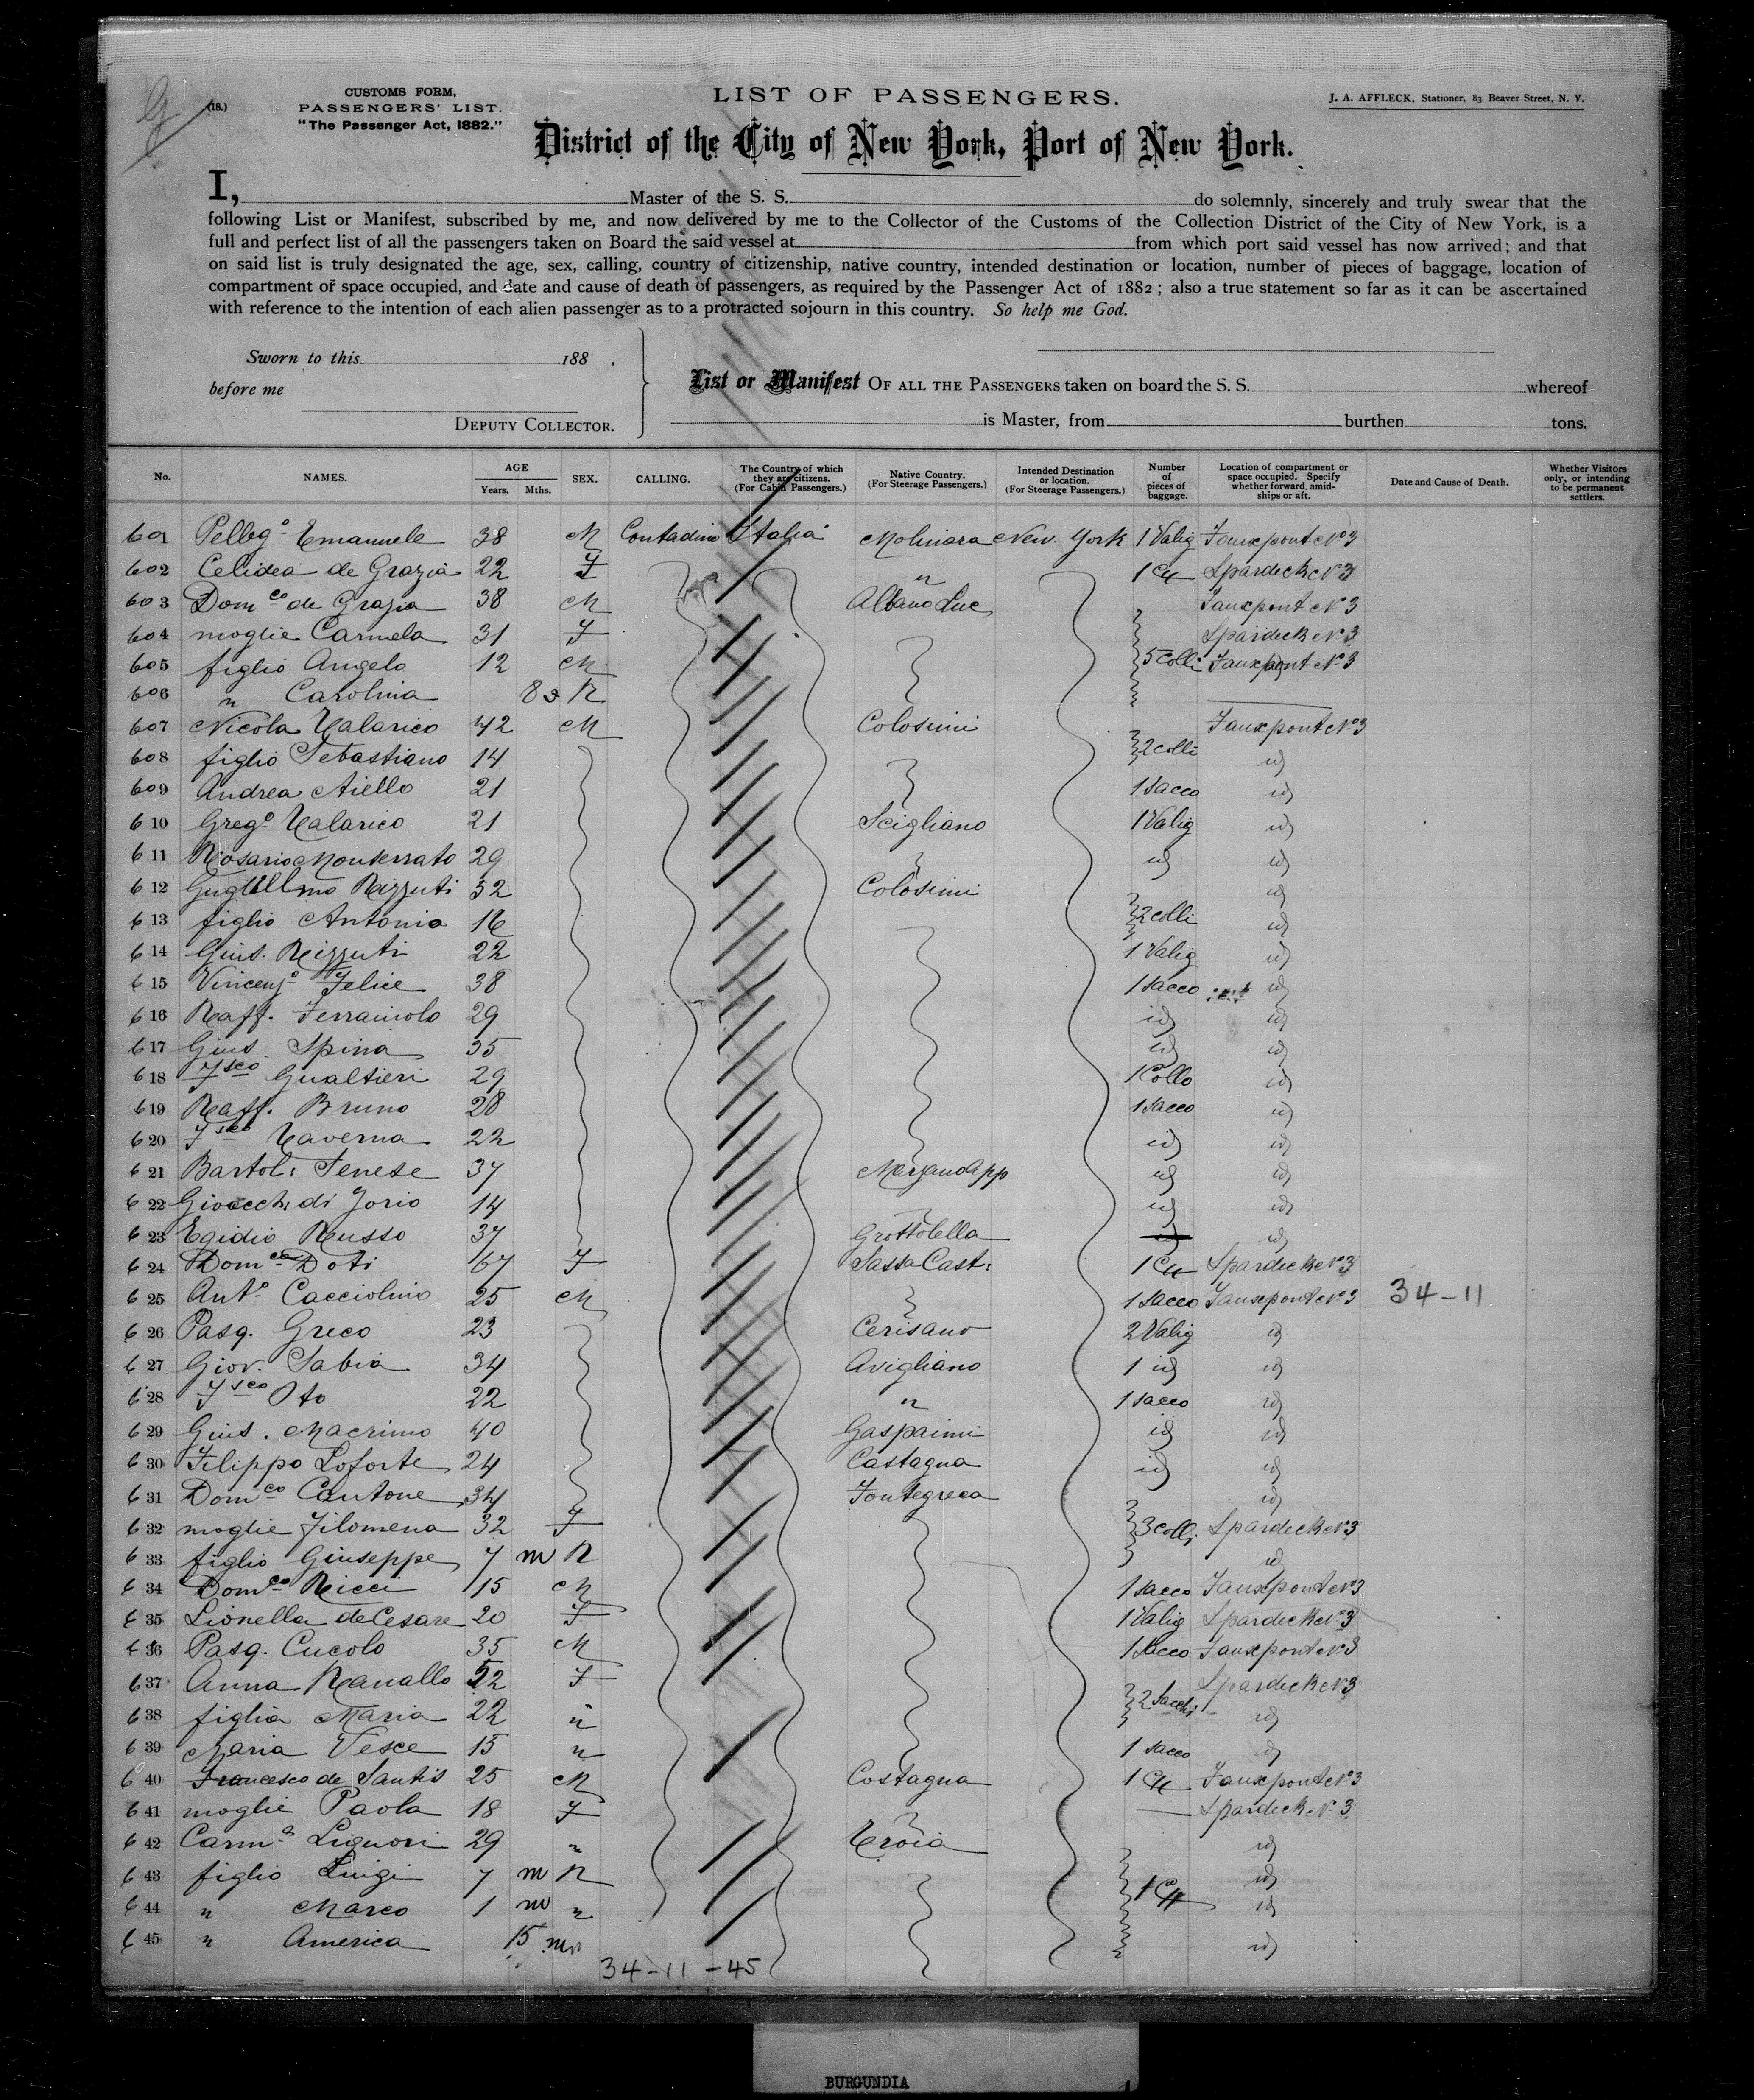 (18.)
CUSTOMS FORM,
PASSENGERS' LIST.
"The Passenger Act, 1882."
LIST OF PASSENGERS.
J. A. AFFLECK, Stationer, 83 Beaver Street, N. Y.
District of the City of New York, Port of New York.
I, Master of the S. S. do solemnly, sincerely and truly swear that the
following List or Manifest, subscribed by me, and now delivered by me to the Collector of the Customs of the Collection District of the City of New York, is a
full and perfect list of all the passengers taken on Board the said vessel at from which port said vessel has now arrived; and that
on said list is truly designated the age, sex, calling, country of citizenship, native country, intended destination or location, number of pieces of baggage, location of
compartment or space occupied, and date and cause of death of passengers, as required by the Passenger Act of 1882; also a true statement so far as it can be ascertained
with reference to the intention of each alien passenger as to a protracted sojourn in this country. So help me God.
Sworn to this 188 .
before me
DEPUTY COLLECTOR.
List or Manifest OF ALL THE PASSENGERS taken on board the S. S. whereof
is Master, from burthen tons.
No. NAMES. AGE Years. Mths. SEX. CALLING. The Country of which they are citizens. (For Cabin Passengers.) Native Country. (For Steerage Passengers.) Intended Destination or location. (For Steerage Passengers.) Number of pieces of baggage. Location of compartment or space occupied. Specify whether forward, amidships or aft. Date and Cause of Death. Whether Visitors only, or intending to be permanent settlers.
601 Pellegº Emanuele 38 M Contadino Italia Molinara New York 1 Valig Fauxpont Nº3
602 Celidea de Grazia 22 F " 1 Spardeck Nº3
603 Domco de Grazia 38 M Albano Luc Fauxpont Nº3
604 moglie Carmela 31 F Spardeck Nº3
605 figlio Angelo 12 M 5 Colli Fauxpont Nº3
606 " Carolina 8
607 Nicola Talarico 42 M Colosimi Fauxpont Nº3
608 figlio Sebastiano 14 2 colli id
609 Andrea Aiello 21 1 sacco id
610 Gregº Talarico 21 Scigliano 1 Valig id
611 Rosario Monserrato 29 id id
612 Guglielmo Rizzuti 52 Colosimi id
613 figlio Antonio 16 2 colli id
614 Gius. Rizzuti 22 1 Valig id
615 Vincenzº Felice 38 1 sacco id
616 Raff. 29 id id
617 Gius. Spina 35 id id
618 Fsco Gualtieri 29 1 Collo id
619 Raff. Bruno 28 1 sacco id
620 Fsco Taverna 22 id id
621 Bartol: Senese 37 Marzano App id id
622 Gioacch: di Jorio 14 id id
623 Egidio Russo 37 Grottolella id
624 Domca Doti 67 F Sassa Cast: 1 Spardeck Nº3
625 Antº Cacciolino 25 M 1 sacco Fauxpont Nº3 34-11
626 Pasq. Greco 23 Cerisano 2 Valig id
627 Giov. Sabia 34 Avigliano 1 id id
628 Fsco Oto 22 " 1 sacco id
629 Gius. Macrimo 40 id id
630 Filippo Loforte 24 Castagna id id
631 Domco Cantone 34 Fontegreca id
632 moglie Filomena 32 F 3 colli Spardeck Nº3
633 figlio Giuseppe 7 m id
634 Domco Ricci 15 M 1 sacco Fauxpont Nº3
635 Lionella de Cesare 20 F 1 Valig Spardeck Nº3
636 Pasq. Cucolo 35 M 1 sacco Fauxpont Nº3
637 Anna Ranallo 52 F Spardeck Nº3
638 figlia Maria 22 " 2 Sacchi id
639 Maria Pesce 15 " 1 sacco id
640 Francesco de Santis 25 M Castagna 1 Fauxpont Nº3
641 moglie Paola 18 F Spardeck Nº3
642 Carmª Liguori 29 " Troia id
643 figlio Luigi 7 m id
644 " Marco 1 m " 1 id
645 " America 15 id
34-11-45
BURGUNDIA